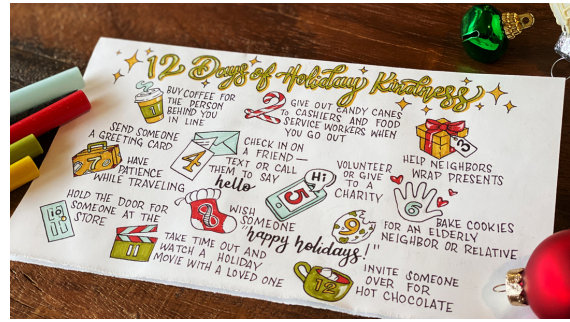 12 Days of Holiday Kindness
1
BUY COFFEE FOR
THE PERSON
BEHIND YOU
IN LINE
2
GIVE OUT CANDY CANES
TO CASHIERS AND FOOD
SERVICE WORKERS WHEN
YOU GO OUT
3
HELP NEIGHBORS
WRAP PRESENTS
SEND SOMEONE
A GREETING CARD
4
CHECK IN ON
A FRIEND—
TEXT OR CALL
THEM TO SAY
hello
Hi!
5
VOLUNTEER
OR GIVE
TO A
CHARITY
6
7
HAVE
PATIENCE
WHILE TRAVELING
8
WISH
SOMEONE
"happy holidays!"
9
BAKE COOKIES
FOR AN ELDERLY
NEIGHBOR OR RELATIVE
HOLD THE DOOR FOR
SOMEONE AT THE
STORE
10
11
TAKE TIME OUT AND
WATCH A HOLIDAY
MOVIE WITH A LOVED ONE
12
INVITE SOMEONE
OVER FOR
HOT CHOCOLATE